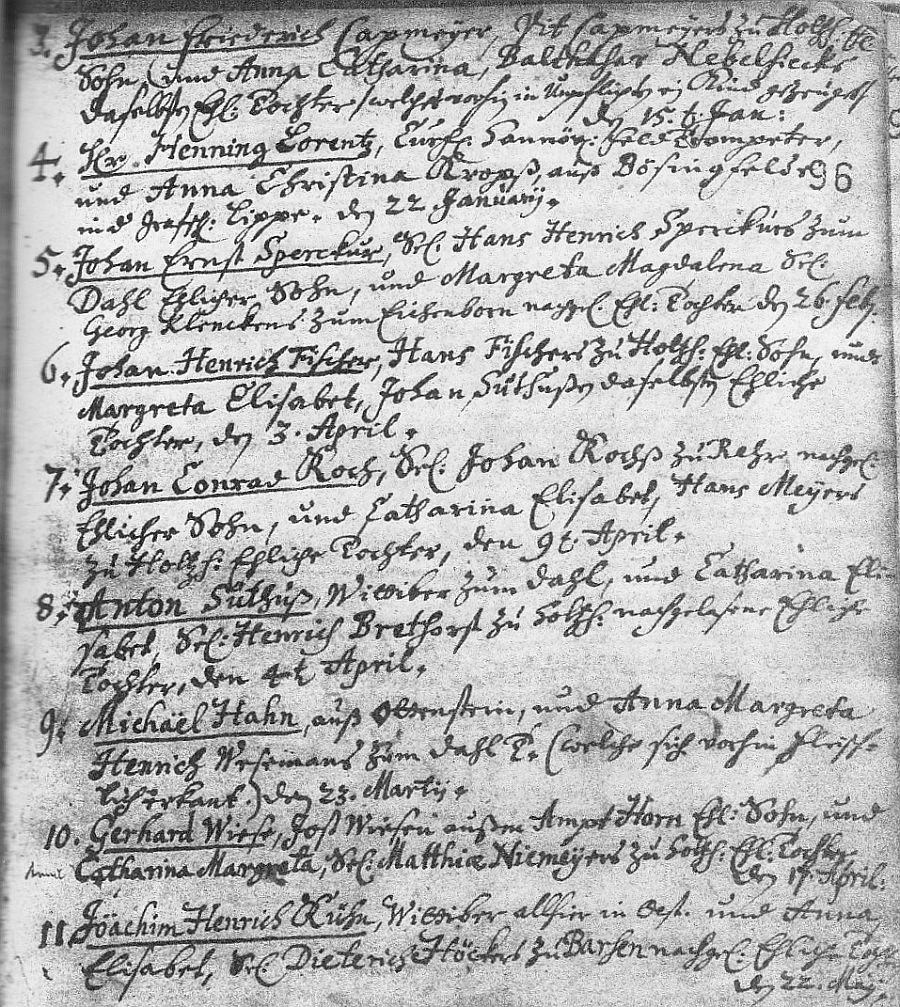 3. Johan Friederich Capmeyer, Pit Capmeyers zu Holtzh. Ehl.
Sohn, und Anna Catharina, Balthasar Nebelsiecks
daselbsten Ehl. Tochter, welche vorhin in Unpflicht ein Kind gezeuget
den 15. t. Jan:
4. Hr. Henning Lorentz, Churfl. Hannöv: Feld Trompeter,
und Anna Christina Kropß, auß Bösingfelde 96
in d Grafsch: Lippe. den 22 Januarij.
5. Johan Ernst Sperckur, Sel. Hans Henrich Sperckurs zum
Dahl Ehlicher Sohn, und Margreta Magdalena Sel.
Georg Klenckens zum Eichenborn nachgel. Ehl: Tochter den 26. Feb.
6. Johan Henrich Fischer, Hans Fischers zu Holtzh: Ehl: Sohn, und
Margreta Elisabet, Johan Suthußen daselbsten Ehliche
Tochter, den 3. April.
7. Johan Conrad Koch, Sel. Johan Kochß zu Rehr nachgel.
Ehlicher Sohn, und Catharina Elisabet, Hans Meyers
zu Holtzh: Ehliche Tochter, den 9t. April.
8. Anton Suthuß, Wittiber zum Dahl, und Catharina Eli-
sabet, Sel: Henrich Brethorst zu Holtzh: nachgelaßene Ehliche
Tochter, den 4t April.
9. Michaël Hahn, auß Ottenstein, und Anna Margreta
Henrich Wesemans zum Dahl T. (welche sich vorhin fleisch-
lich erkant.) den 23. Martij.
10. Gerhard Wiese, Jost Wiesen außm Ampt Horn Ehl: Sohn, und
Anna Catharina Margreta, Sel: Matthiæ Niemeyers zu Holtzh: Ehl. Tochter
den 17 April.
11. Jöachim Henrich Kühn, Wittiber allhier in und Anna
Elisabet, Sel. Dieterich Höckers zu Barsen nachgel. Ehliche Tocht.
den 22. Maij.